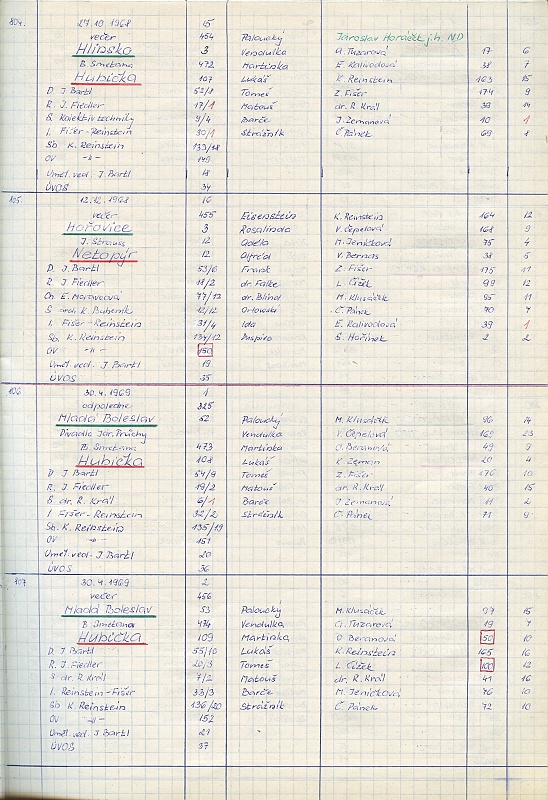 804. 27.10.1968 15
večer 454 Paloucký Jaroslav Horáček j.h. ND
Hlinsko 3 Vendulka A. Tuzarová 17 6
B. Smetana 472 Martinka E. Kalivodová 38 7
Hubička 107 Lukáš K. Reinstein 163 15
D J. Bartl 52/8 Tomeš Z. Fišer 174 9
R. J. Fiedler 17/1 Matouš dr. R. Král 39 14
S Kolektiv techniky 9/4 Barče J. Zemanová 10 1
I. Fišer-Reinstein 30/1 Strážník Č. Pánek 69 8
Sb K. Reinstein 133/18
OV -"- 149
Uměl. ved. J. Bartl 18
ÚVOS 34
105 12.12.1968 16
večer 455 Eisenstein K. Reinstein 164 12
Hořovice 3 Rosalinda V. Čepelová 168 9
J. Strauss 12 Adéla M. Jeníčková 75 4
Netopýr 12 Alfréd V. Bernas 38 5
D. J. Bartl 53/6 Frank Z. Fišer 175 11
R. J. Fiedler 18/2 dr. Falke L. Čížek 99 12
Ch. E. Moravcová 77/12 dr. Blind M. Klusáček 95 11
S arch. K. Bubeník 12/12 Orlowski Č. Pánek 70 7
I. Fišer-Reinstein 31/4 Ida E. Kalivodová 39 1
Sb. K. Reinstein 134/12 Inspiro S. Hořínek 2 2
OV -"- 150
Uměl. ved. J. Bartl 19
ÚVOS 35
106 30.4.1969 1
odpoledne 325
Mladá Boleslav 52 Paloucký M. Klusáček 96 14
Divadlo Jar. Průchy Vendulka V. Čepelová 169 23
B. Smetana 473 Martinka O. Beranová 49 9
Hubička 108 Lukáš K. Zeman 20 4
D J. Bartl 54/9 Tomeš Z. Fišer 176 10
R. J. Fiedler 19/2 Matouš dr. R. Král 40 15
S. dr. R. Král 6/1 Barče J. Zemanová 11 2
I. Fišer-Reinstein 32/2 Strážník Č. Pánek 71 9
Sb. K. Reinstein 135/19
OV -"- 151
Uměl. ved. J. Bartl 20
ÚVOS 36
107 30.4.1969 2
večer 456
Mladá Boleslav 53 Paloucký M. Klusáček 97 15
B. Smetana 474 Vendulka A. Tuzarová 19 7
Hubička 109 Martinka O Beranová 50 10
D J. Bartl 55/10 Lukáš K. Reinstein 165 16
R J. Fiedler 20/3 Tomeš L. Čížek 100 12
S dr. R. Král 7/2 Matouš dr. R. Král 41 16
I. Reinstein-Fišer 33/3 Barče M. Jeníčková 76 10
Sb K. Reinstein 136/20 Strážník Č. Pánek 72 10
OV -"- 152
Uměl. ved J. Bartl 21
ÚVOS 37